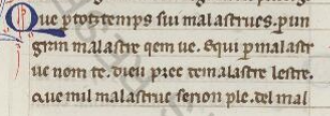 Que ꝑ totz temps sui malastrues. ꝑ un
gran malastre qem ue. Equi ꝑ malastr
ue nom te. dieu prec qe malastre lestre.
Que mil malastruc serion ple. del mal